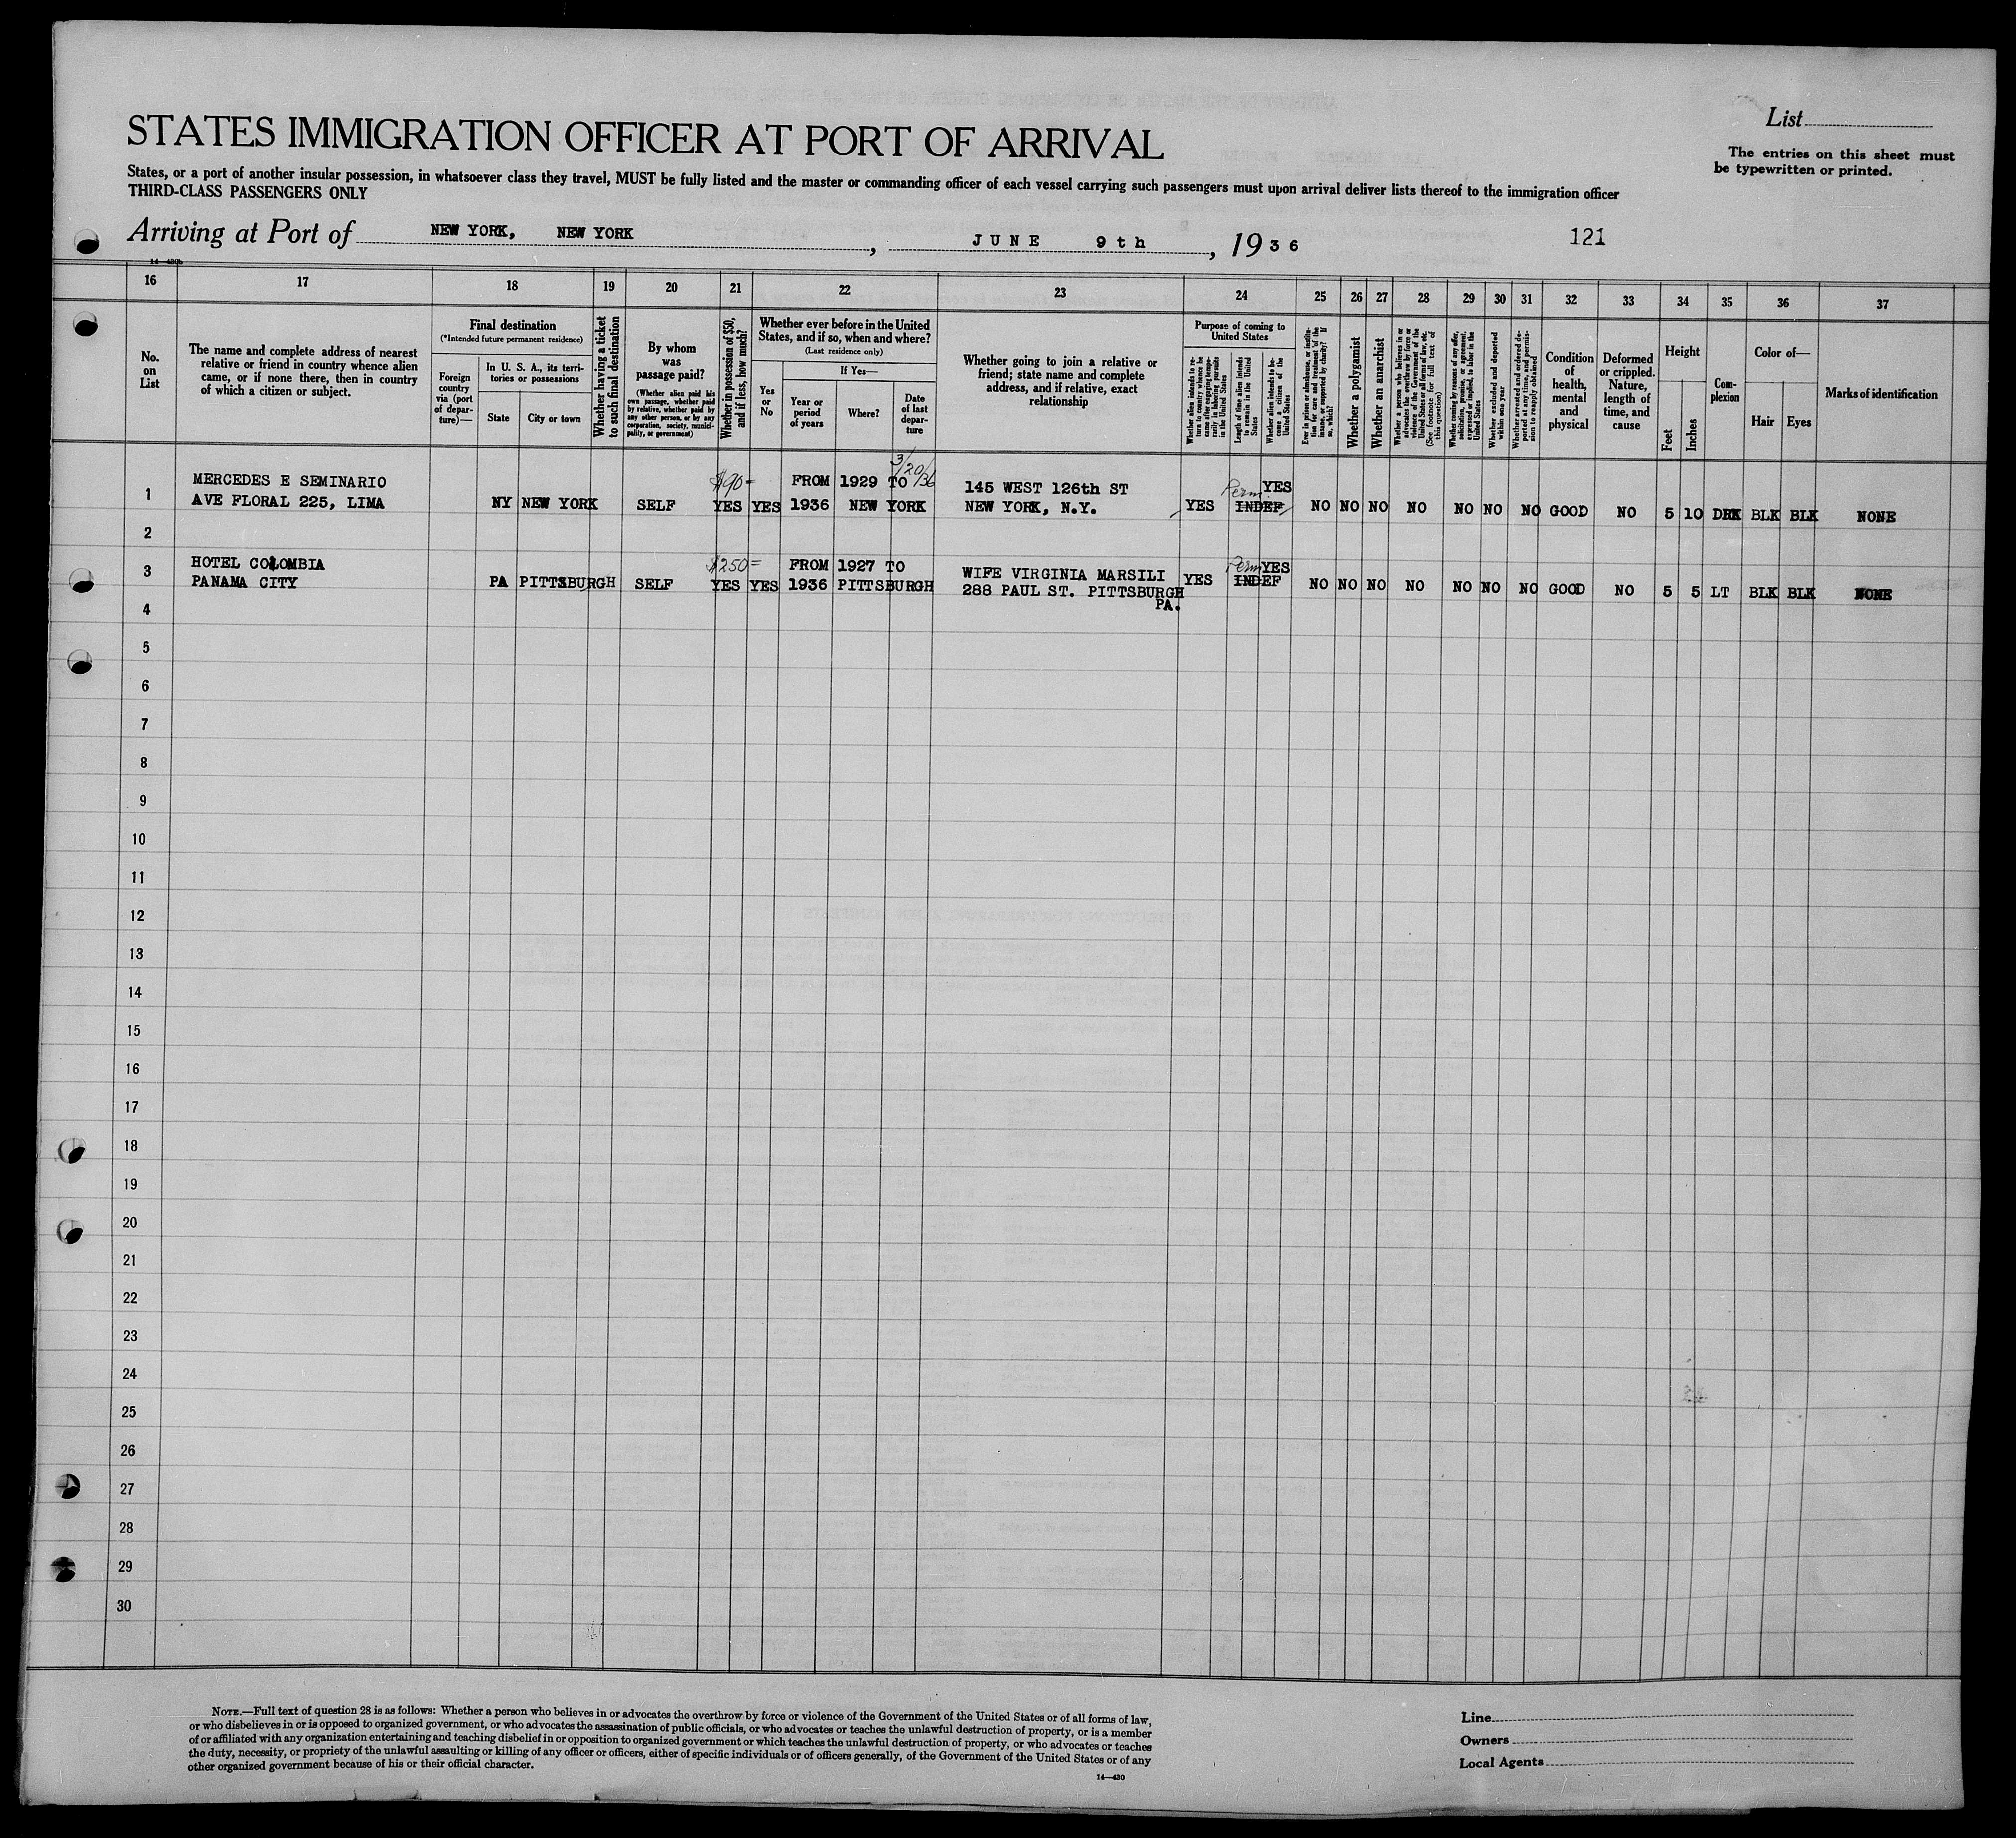 STATES IMMIGRATION OFFICER AT PORT OF ARRIVAL
List
The entries on this sheet must
be typewritten or printed.
States, or a port of another insular possession, in whatsoever class they travel, MUST be fully listed and the master or commanding officer of each vessel carrying such passengers must upon arrival deliver lists thereof to the immigration officer
THIRD-CLASS PASSENGERS ONLY
Arriving at Port of NEW YORK, NEW YORK, JUNE 9th, 1936
121
14—430b
16 17 18 19 20 21 22 23 24 25 26 27 28 29 30 31 32 33 34 35 36 37
No.
on
List
The name and complete address of nearest
relative or friend in country whence alien
came, or if none there, then in country
of which a citizen or subject.
Final destination
(*Intended future permanent residence)
Foreign
country
via (port
of depar-
ture)—
In U. S. A., its terri-
tories or possessions
State
City or town
Whether having a ticket
to such final destination
By whom
was
passage paid?
(Whether alien paid his
own passage, whether paid
by relative, whether paid by
any other person, or by any
corporation, society, munici-
pality, or government)
Whether in possession of $50,
and if less, how much?
Whether ever before in the United
States, and if so, when and where?
(Last residence only)
Yes
or
No
If Yes—
Year or
period
of years
Where?
Date
of last
depar-
ture
Whether going to join a relative or
friend; state name and complete
address, and if relative, exact
relationship
Purpose of coming to
United States
Whether alien intends to re-
turn to country whence he
came after engaging tempo-
rarily in laboring pursuits
in the United States
Length of time alien intends
to remain in the United
States
Whether alien intends to be-
come a citizen of the
United States
Ever in prison or almshouse, or institu-
tion for care and treatment of the
insane, or supported by charity? If
so, which?
Whether a polygamist
Whether an anarchist
Whether a person who believes in or
advocates the overthrow by force or
violence of the Government of the
United States or all forms of law, etc.
(See footnote for full text of
this question)
Whether coming by reason of any offer,
solicitation, promise, or agreement,
expressed or implied, to labor in the
United States
Whether excluded and deported
within one year
Whether arrested and ordered de-
ported at any time, and permis-
sion to reapply obtained
Condition
of
health,
mental
and
physical
Deformed
or crippled.
Nature,
length of
time, and
cause
Height
Feet
Inches
Com-
plexion
Color of—
Hair
Eyes
Marks of identification
3/20/36
MERCEDES E SEMINARIO $90= FROM 1929 TO 145 WEST 126th ST Perm YES
1 AVE FLORAL 225, LIMA NY NEW YORK SELF YES YES 1936 NEW YORK NEW YORK, N.Y. YES INDEF NO NO NO NO NO NO NO GOOD NO 5 10 DRK BLK BLK NONE
2
HOTEL COLOMBIA $250= FROM 1927 TO WIFE VIRGINIA MARSILI Perm YES
3 PANAMA CITY PA PITTSBURGH SELF YES YES 1936 PITTSBURGH 288 PAUL ST. PITTSBURGH YES INDEF NO NO NO NO NO NO NO GOOD NO 5 5 LT BLK BLK NONE
PA.
4
5
6
7
8
9
10
11
12
13
14
15
16
17
18
19
20
21
22
23
24
25
26
27
28
29
30
NOTE.—Full text of question 28 is as follows: Whether a person who believes in or advocates the overthrow by force or violence of the Government of the United States or of all forms of law,
or who disbelieves in or is opposed to organized government, or who advocates the assassination of public officials, or who advocates or teaches the unlawful destruction of property, or is a member
of or affiliated with any organization entertaining and teaching disbelief in or opposition to organized government or which teaches the unlawful destruction of property, or who advocates or teaches
the duty, necessity, or propriety of the unlawful assaulting or killing of any officer or officers, either of specific individuals or of officers generally, of the Government of the United States or of any
other organized government because of his or their official character.
14—430
Line
Owners
Local Agents